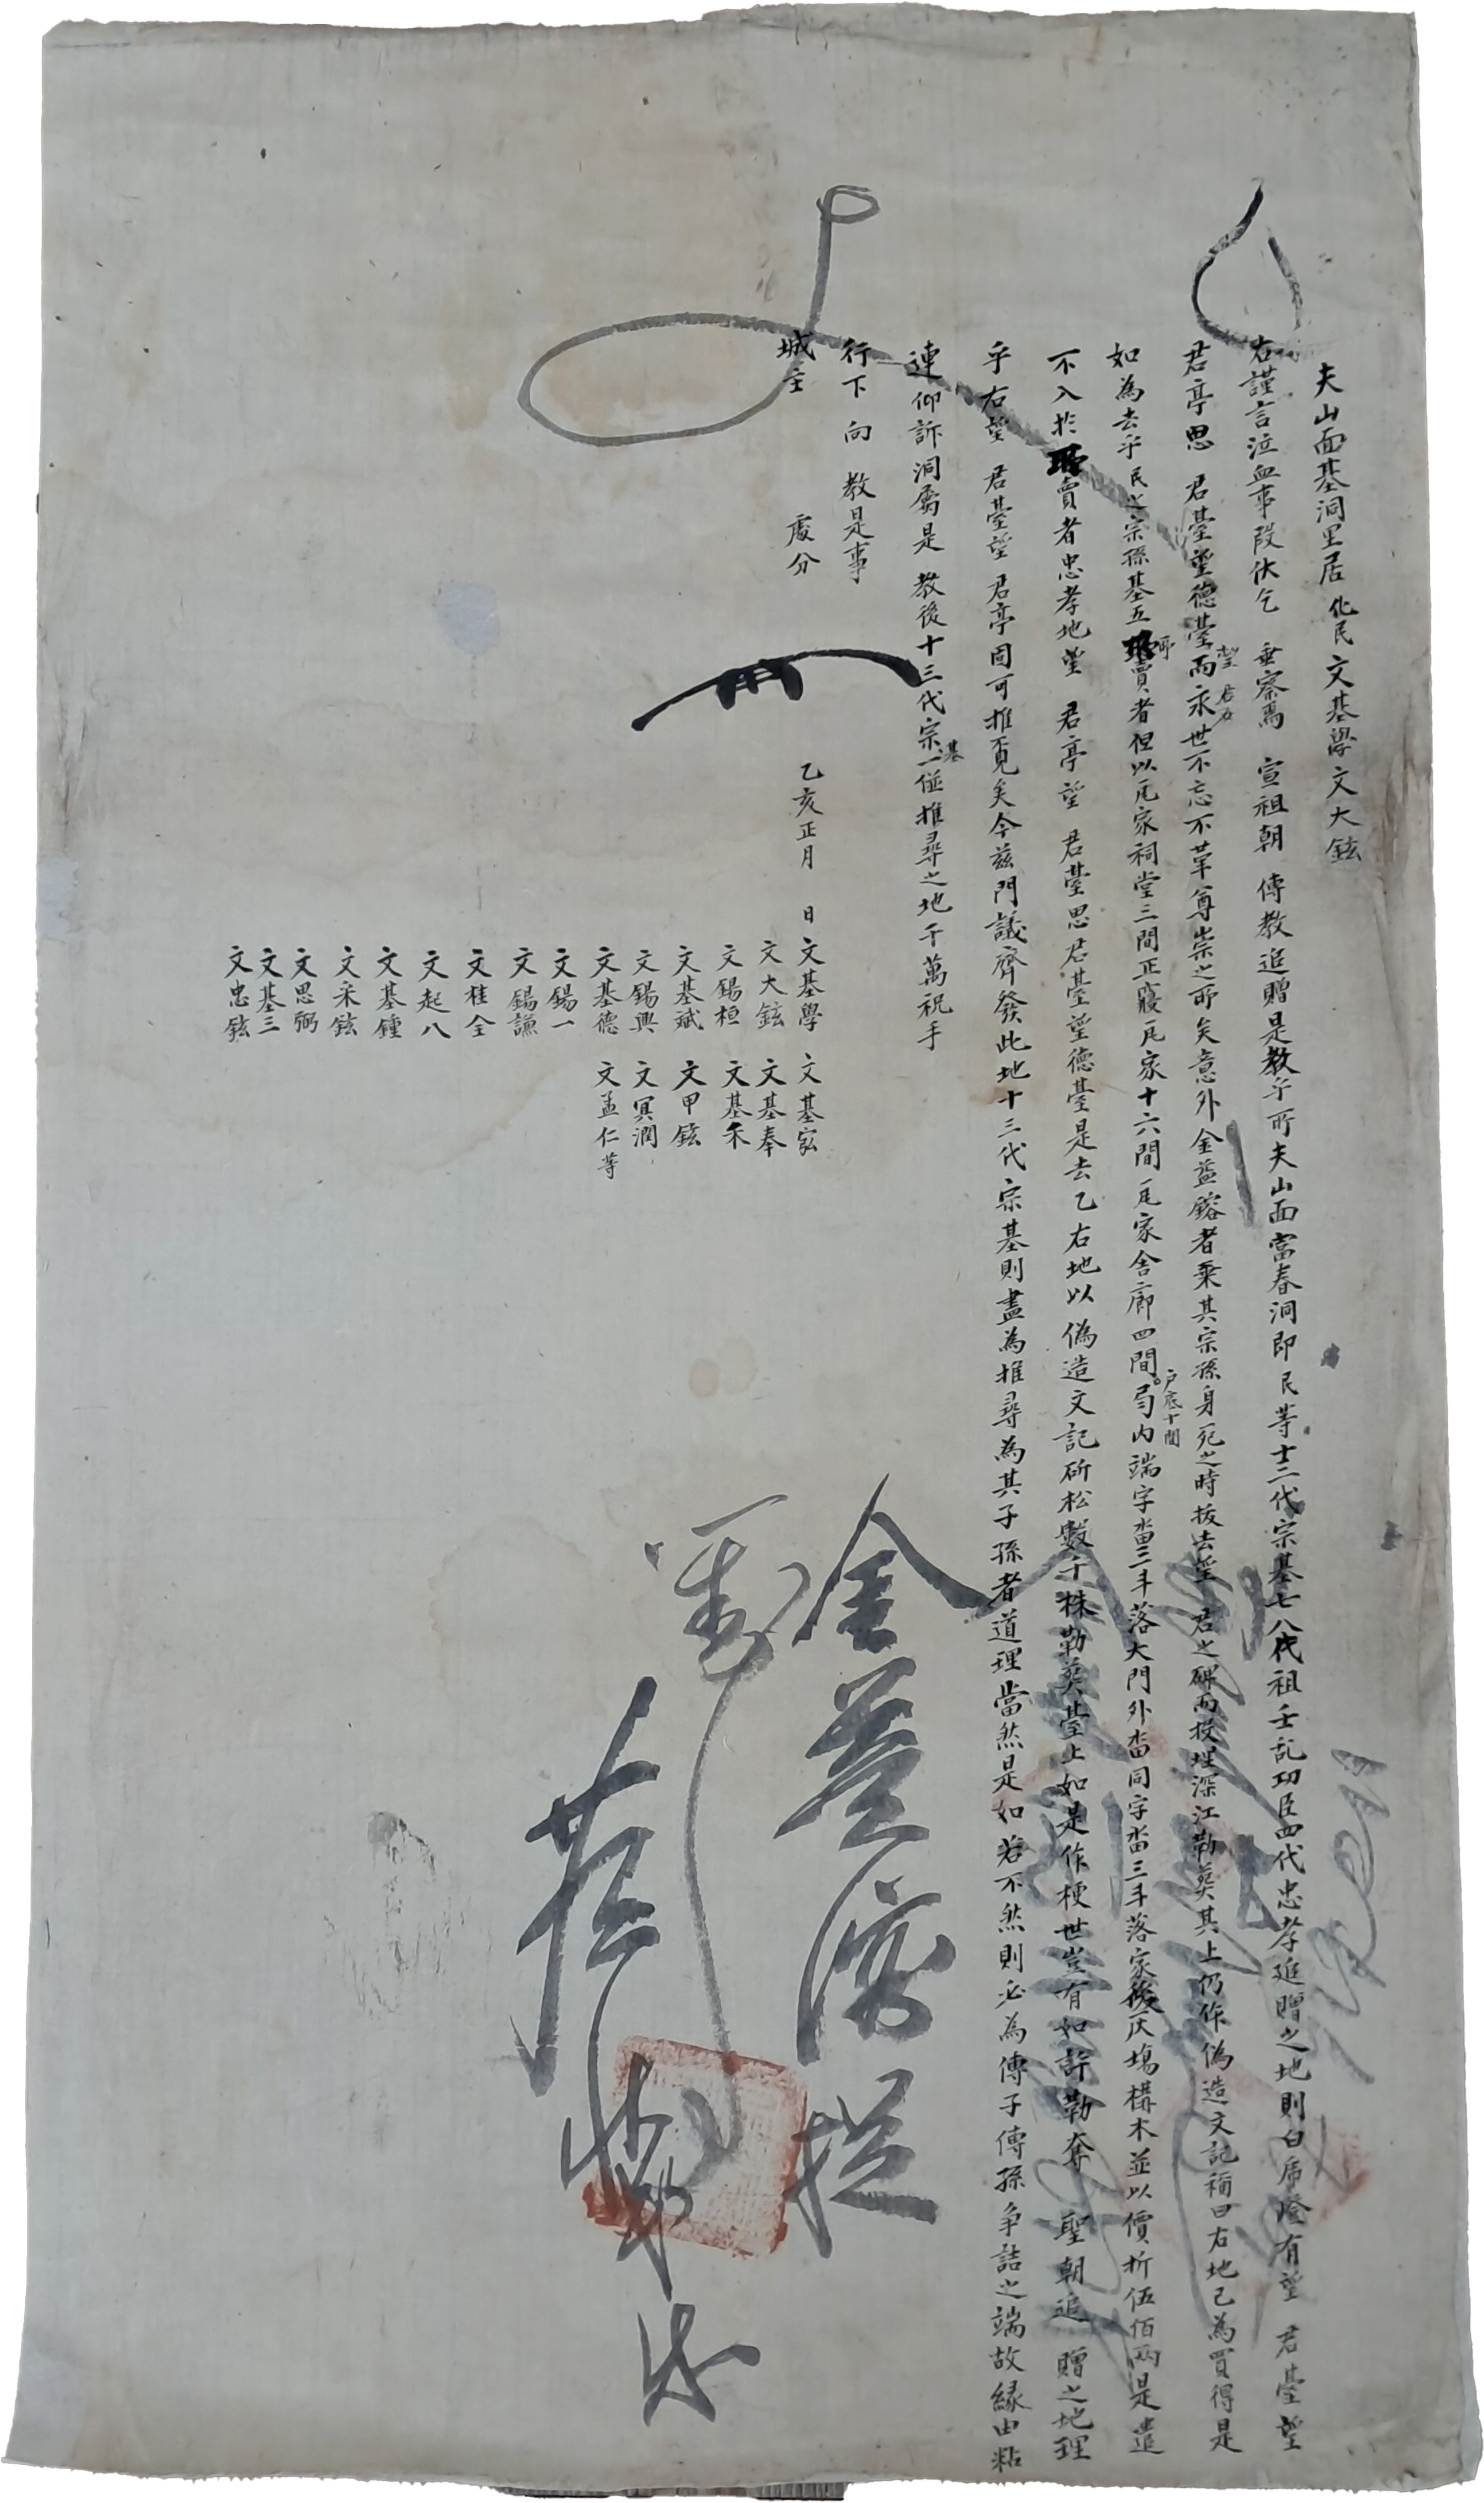 夫山面基洞里居 化民 文基學 文大鉉
右謹言泣血事段伏乞 垂察焉 宣祖朝 傳教追贈是教乎所夫山面富春洞即民等十三代宗基七八代祖壬乱功臣四代忠孝追贈之地則白虎嶝有望 君臺望
君亭思 君臺望德臺而永世不忘不革尊崇之所矣意外金益鎔者乘其宗孫身死之時拔去望 君之碑而投埋深江勒葬其上仍作偽造文記稱曰右地已為買得是
望 君
如為去乎民之宗孫基五 賣者但以瓦家祠堂三間正寢瓦家十六間瓦家舍廊四間局內端字畓三斗落大門外畓同字畓三斗落家後灰塲構木並以價折伍佰兩是遣
戶底十間
不入於 賣者忠孝地望 君亭望 君臺思君臺望德臺是去乙右地以偽造文記斫松數千株勒葬臺上如是作梗世豈有如許勒奪 聖朝追 贈之地理
乎右望 君臺望 君亭固可推覓矣今玆門議齊發此地十三代宗基則盡為推尋為其子孫者道理當然是如若不然則必為傳子傳孫爭詰之端故緣由粘
連仰訴洞燭是 教後十三代宗基一並推尋之地千萬祝手
行下向 教是事
城主 處分
乙亥正月 日
文基學 文基宖
文大鉉 文基奉
文錫桓 文基禾
文基斌 文甲鉉
文錫興 文冥潤
文基德 文孟仁等
文錫一
文錫謙
文桂全
文起八
文基鍾
文采鉉
文思弼
文基三
文忠鉉
金益鎔捉